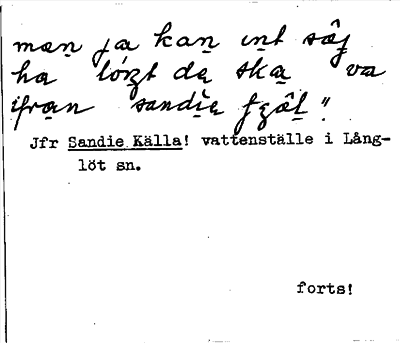 man ja kan int säj
ha lört de ska va
ifrån sandie fzäl"
Jfr Sandie Källa! vattenställe i Lång-
löt sn.
forts!